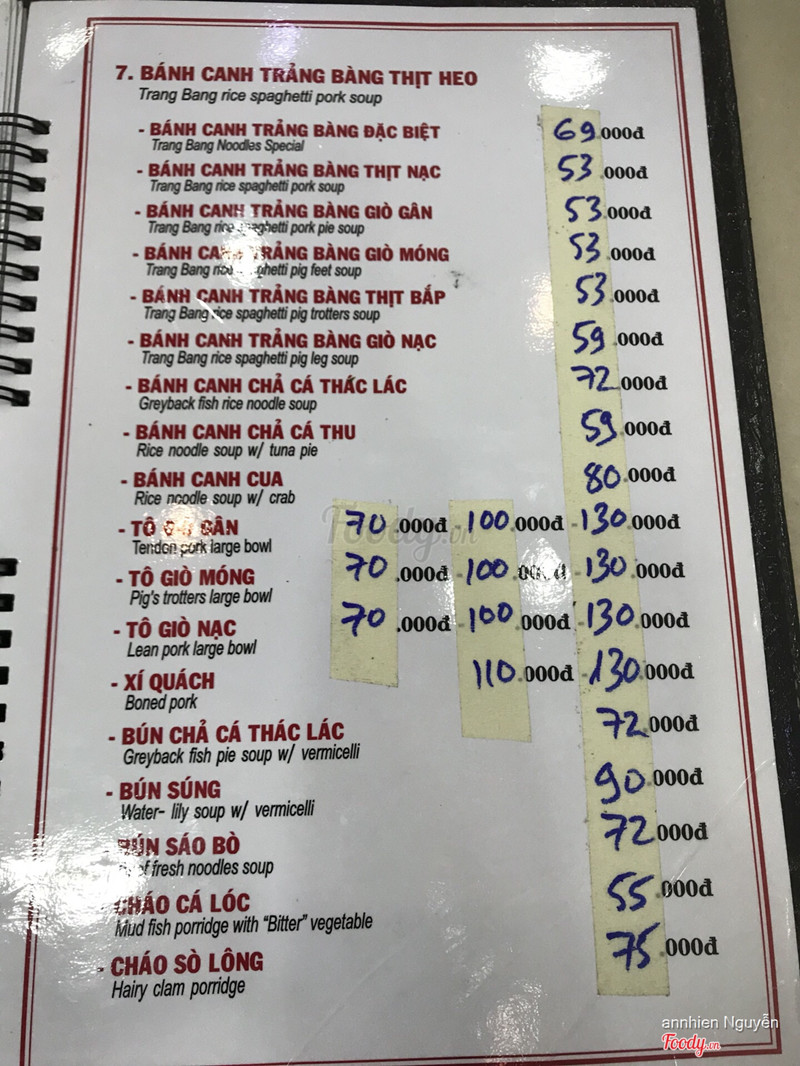 7. BÁNH CANH TRẢNG BÀNG THỊT HEO
Trang Bang rice spaghetti pork soup
- BÁNH CANH TRẢNG BÀNG ĐẶC BIỆT 69.000đ
Trang Bang Noodles Special
- BÁNH CANH TRẢNG BÀNG THỊT NẠC 53.000đ
Trang Bang rice spaghetti pork soup
- BÁNH CANH TRẢNG BÀNG GIÒ GÂN 53.000đ
Trang Bang rice spaghetti pork pie soup
- BÁNH CANH TRẢNG BÀNG GIÒ MÓNG 53.000đ
Trang Bang rice spaghetti pig feet soup
- BÁNH CANH TRẢNG BÀNG THỊT BẮP 53.000đ
Trang Bang rice spaghetti pig trotters soup
- BÁNH CANH TRẢNG BÀNG GIÒ NẠC 59.000đ
Trang Bang rice spaghetti pig leg soup
- BÁNH CANH CHẢ CÁ THÁC LÁC 72.000đ
Greyback fish rice noodle soup
- BÁNH CANH CHẢ CÁ THU 59.000đ
Rice noodle soup w/ tuna pie
- BÁNH CANH CUA 80.000đ
Rice noodle soup w/ crab
- TÔ GÂN 70.000đ - 100.000đ - 130.000đ
Tendon pork large bowl
- TÔ GIÒ MÓNG 70.000đ - 100.000đ - 130.000đ
Pig's trotters large bowl
- TÔ GIÒ NẠC 70.000đ - 100.000đ - 130.000đ
Lean pork large bowl
- XÍ QUÁCH 110.000đ - 130.000đ
Boned pork
- BÚN CHẢ CÁ THÁC LÁC 72.000đ
Greyback fish pie soup w/ vermicelli
- BÚN SÚNG 90.000đ
Water- lily soup w/ vermicelli
- BÚN SÁO BÒ 72.000đ
fresh noodles soup
- CHÁO CÁ LÓC 55.000đ
Mud fish porridge with "Bitter" vegetable
- CHÁO SÒ LÔNG 75.000đ
Hairy clam porridge
Foody.vn
annhien Nguyễn
Foody.vn